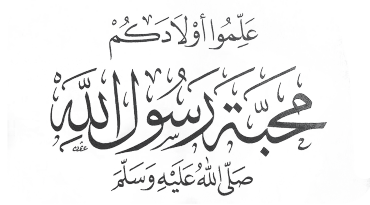 عَلِّمُوا أَوْلَادَكُمْ
مَحَبَّةَ رَسُولِ اللَّهِ
صَلَّى اللهُ عَلَيْهِ وَسَلَّمَ